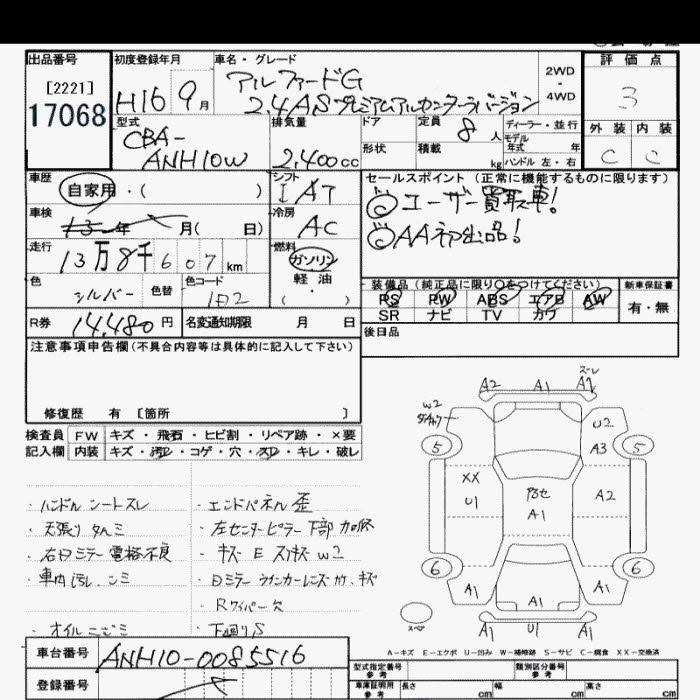 出品番号
[2221]
17068
初度登録年月
H16 9月
車名・グレード
アルファードG
2.4AS プレミアムアルカンターラバージョン
2WD
・
4WD
評価点
3
外装 内装
C C
型式
CBA-
ANH10W
排気量
2,400cc
ドア
定員
8人
ディーラー・並行
モデル
年式 年
形状
積載
kg
ハンドル 左・右
車歴
自家用・( )
シフト
I AT
車検
13年 月( 日)
冷房
AC
走行
13万8千607km
燃料
ガソリン
軽油
・
( )
色
シルバー
色替
色コード
1D2
R券
14,480円
名変通知期限 月 日
セールスポイント(正常に機能するものに限ります)
◎ユーザー買取車!
◎AA初出品!
装備品(純正品に限り○をつけてください)
新車保証書
PS PW ABS エアB AW
SR ナビ TV カワ
有・無
後日品
注意事項申告欄(不具合内容等は具体的に記入して下さい)
修復歴 有 [箇所 ]
検査員
記入欄
FW キズ・飛石・ヒビ割・リペア跡・×要
内装 キズ・汚レ・コゲ・穴・スレ・キレ・破レ
・ハンドル シートスレ
・天張り タルミ
・右Dミラー電格不良
・車内汚レ、シミ
・オイルニごミ
・エンドパネル歪
・左センターピラー下部加修
・キズ E スリキズ W2
・Dミラー ウインカーレンズ ガケ、キズ
・Rワイパー欠
・下回りS
A2 A1 A2
スレ
W2
U2
A3
5 5
XX
U1
A1
A2
6 6
A1 A1 A1
A1 U1 A1
スペア
A-キズ E-エクボ U-凹み W-補修跡 S-サビ C-腐食 XX-交換済
車台番号
ANH10-0085516
登録番号
型式指定番号
参考
類別区分番号
参考
車庫証明用
参考
長さ cm
幅 cm
高さ cm